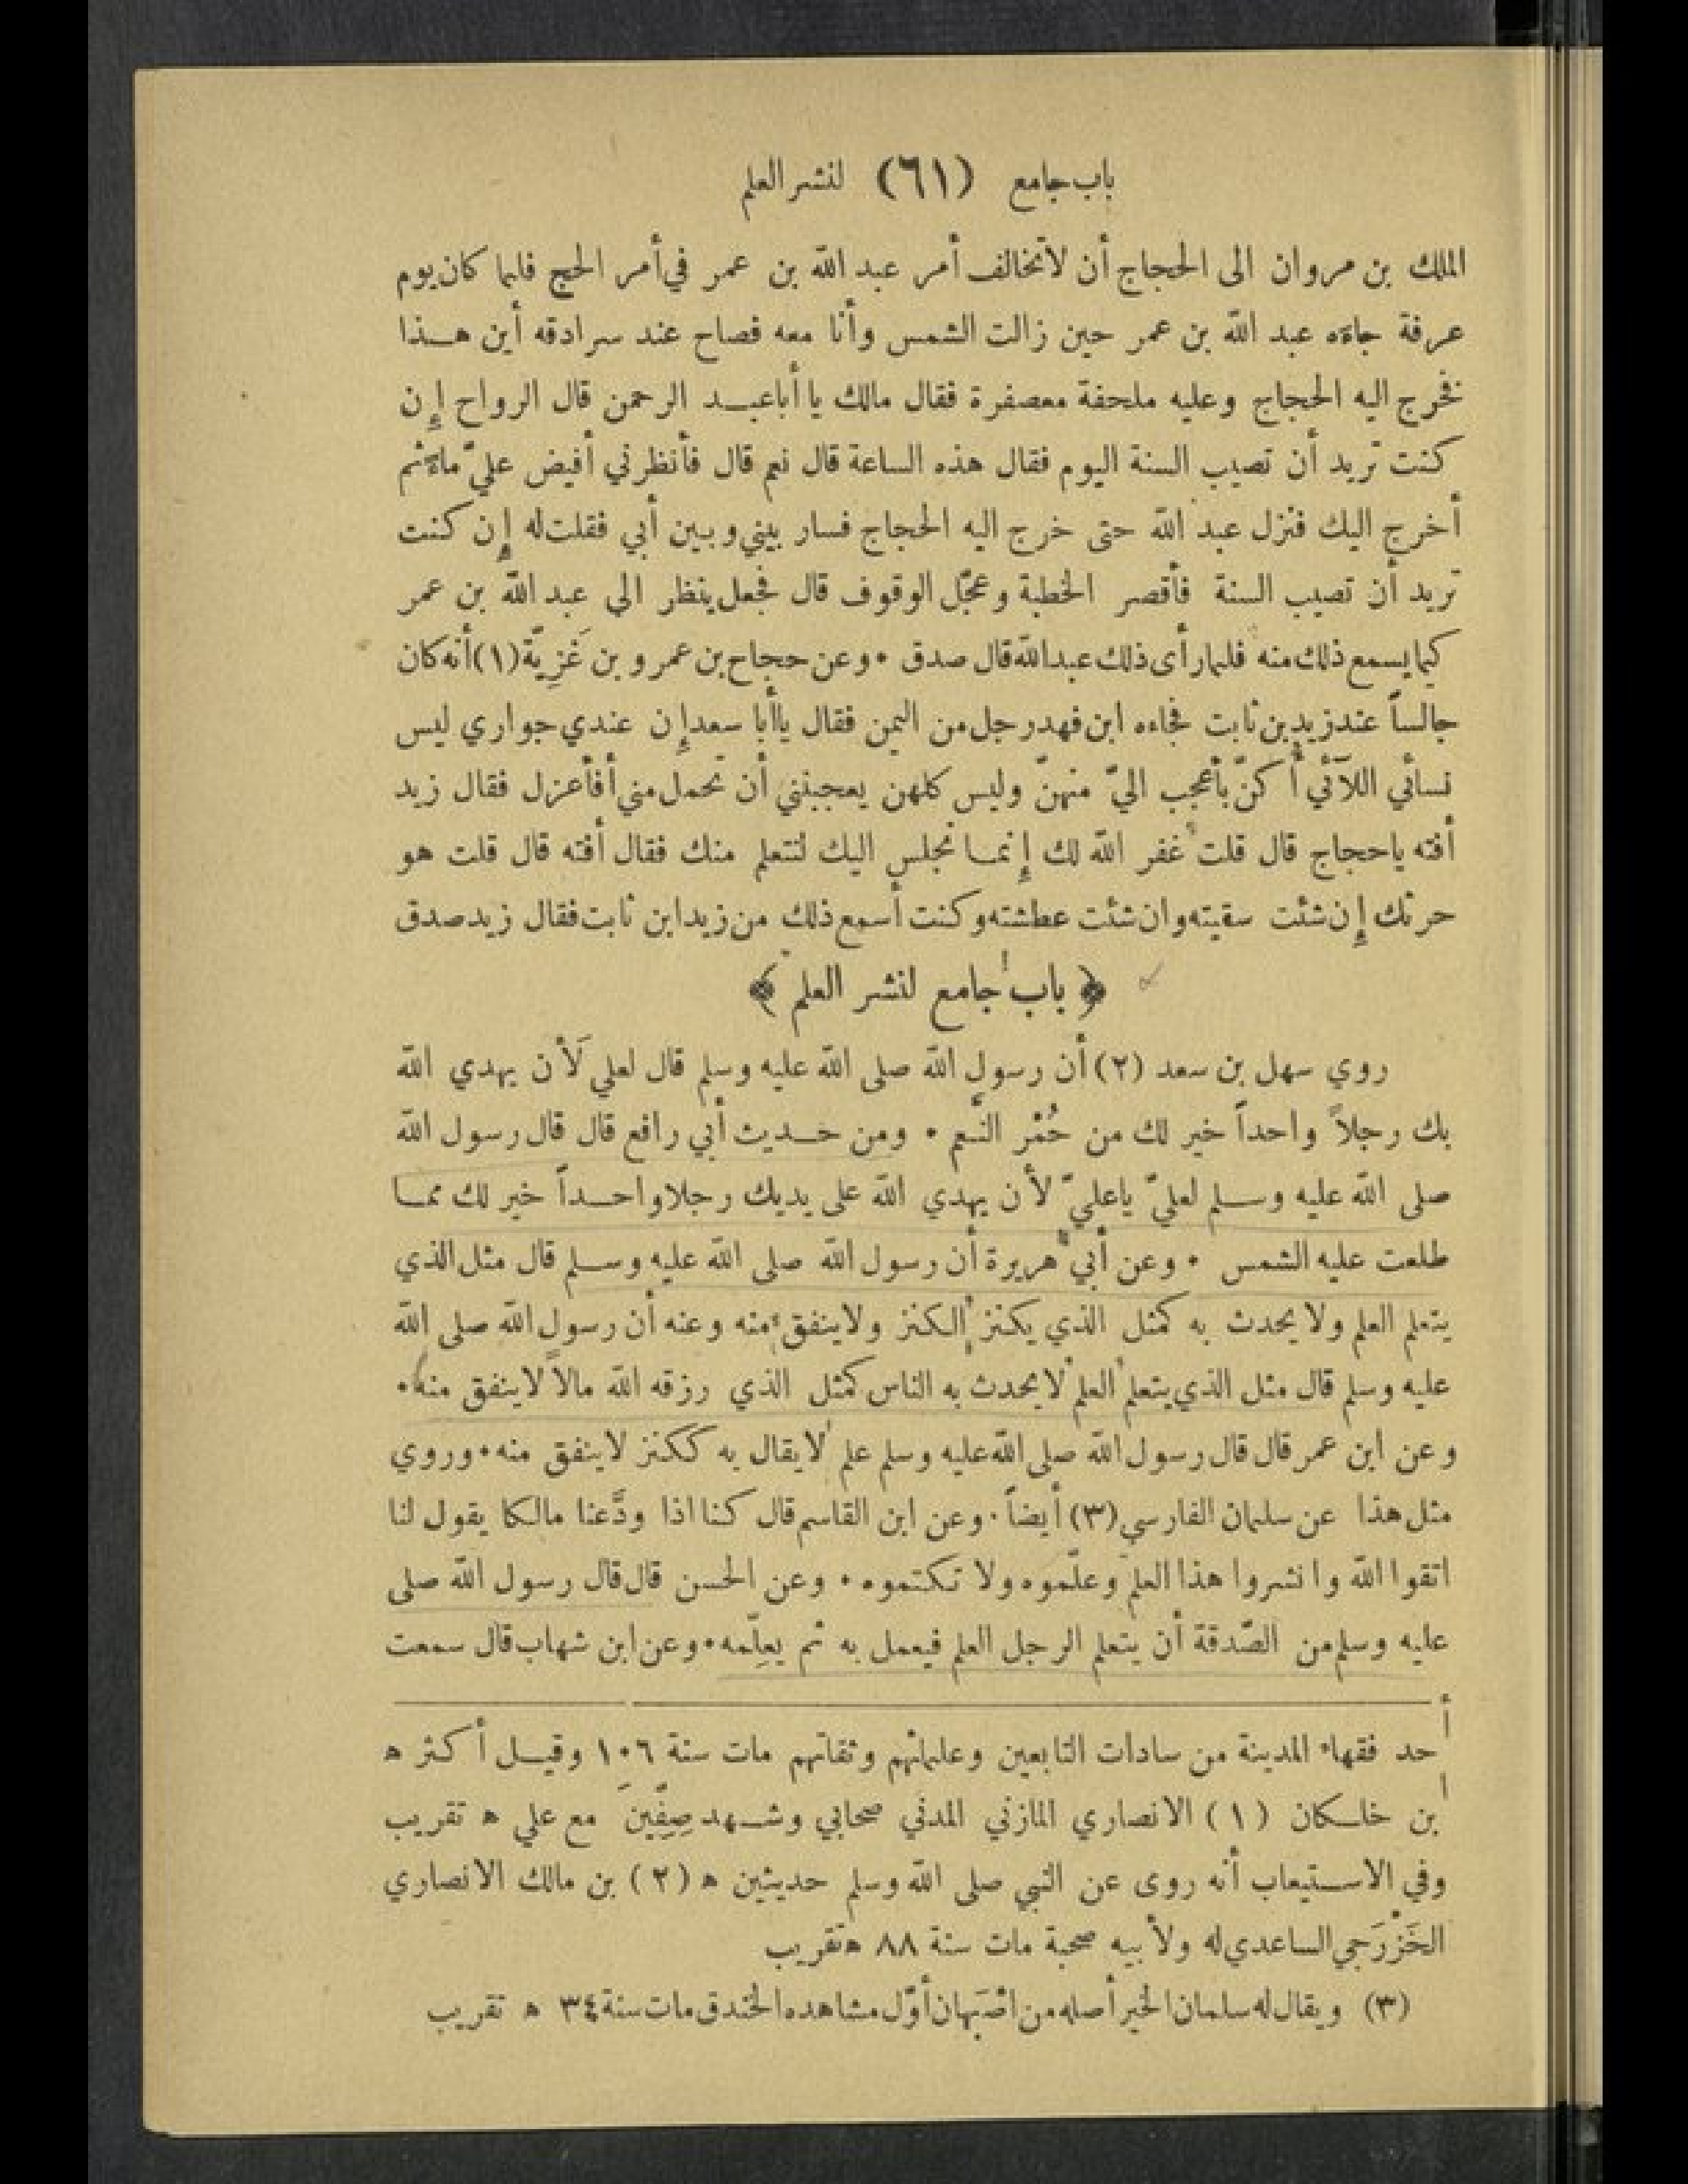 باب جامع (٦١) لنشر العلم
الملك بن مروان الى الحجاج أن لاتخالف أمر عبد الله بن عمر في أمر الحج فلما كان يوم
عرفة جاءه عبد الله بن عمر حين زالت الشمس وأنا معه فصاح عند سرادقه أين هـذا
فخرج اليه الحجاج وعليه ملحفة معصفرة فقال مالك يا أباعبـد الرحمن قال الرواح إن
كنت تريد أن تصيب السنة اليوم فقال هذه الساعة قال نعم قال فأنظرني أفيض عليّ ماء ثم
أخرج اليك فنزل عبد الله حتى خرج اليه الحجاج فسار بيني وبين أبي فقلت له إن كنت
تريد أن تصيب السنة فأقصر الخطبة وعجّل الوقوف قال فجعل ينظر الى عبد الله بن عمر
كيما يسمع ذلك منه فلما رأى ذلك عبد الله قال صدق • وعن حجاج بن عمرو بن غَزِيّة (١) أنه كان
جالساً عند زيد بن ثابت فجاءه ابن فهد رجل من اليمن فقال ياأبا سعد إن عندي جواري ليس
نسائي اللآئي أكنّ بأعجب اليّ منهنّ وليس كلهن يعجبنني أن تحمل مني أفأعزل فقال زيد
أفته ياحجاج قال قلت غفر الله لك إنمـا نجلس اليك لنتعلم منك فقال أفته قال قلت هو
حرثك إن شئت سقيته وان شئت عطشته وكنت أسمع ذلك من زيد ابن ثابت فقال زيد صدق
﴿ باب جامع لنشر العلم ﴾
روي سهل بن سعد (٢) أن رسول الله صلى الله عليه وسلم قال لعلي لَأن يهدي الله
بك رجلاً واحداً خير لك من حُمْر النّعم • ومن حـديث أبي رافع قال قال رسول الله
صلى الله عليه وسـلم لعليّ ياعليّ لأن يهدي الله على يديك رجلا واحـداً خير لك ممـا
طلعت عليه الشمس • وعن أبي هريرة أن رسول الله صلى الله عليه وسـلم قال مثل الذي
يتعلم العلم ولا يحدث به كمثل الذي يكنز الكنز ولا ينفق منه وعنه أن رسول الله صلى الله
عليه وسلم قال مثل الذي يتعلم العلم لا يحدث به الناس كمثل الذي رزقه الله مالاً لا ينفق منه •
وعن ابن عمر قال قال رسول الله صلى الله عليه وسلم علم لا يقال به ككنز لا ينفق منه • وروي
مثل هذا عن سلمان الفارسي (٣) أيضاً • وعن ابن القاسم قال كنا اذا ودَّعنا مالكا يقول لنا
اتقوا الله وانشروا هذا العلم وعلّموه ولا تكتموه • وعن الحسن قال قال رسول الله صلى
عليه وسلم من الصّدقة أن يتعلم الرجل العلم فيعمل به ثم يعلِّمه • وعن ابن شهاب قال سمعت
أحد فقهاء المدينة من سادات التابعين وعلمائهم وثقاتهم مات سنة ١٠٦ وقيـل أكثر ه
ابن خلـكان (١) الانصاري المازني المدني صحابي وشـهد صِفِّينَ مع علي ه تقريب
وفي الاسـتيعاب أنه روى عن النبي صلى الله وسلم حديثين ه (٢) بن مالك الانصاري
الخَزْرَجي الساعدي له ولأبيه صحبة مات سنة ٨٨ ه تقريب
(٣) ويقال له سلمان الخير أصله من اصْبَهان أوّل مشاهده الخندق مات سنة ٣٤ ه تقريب